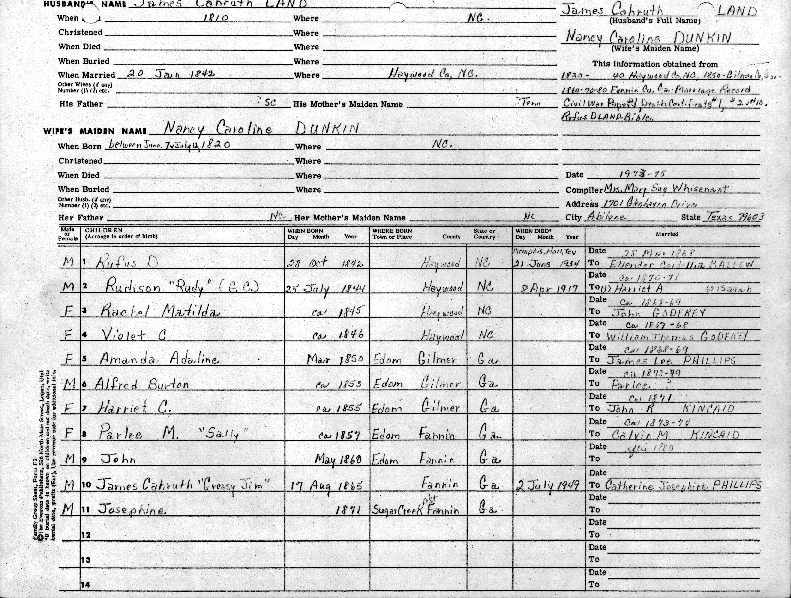 HUSBAND'S NAME James Cahruth LAND
When 1810 Where NC.
Christened Where
When Died Where
When Buried Where
When Married 20 Jan 1842 Where Haywood Co, NC.
Other Wives (if any)
Number (1) (2) etc.
His Father SC His Mother's Maiden Name Tenn
WIFE'S MAIDEN NAME Nancy Caroline DUNKIN
When Born between June 7 July 1820 Where NC.
Christened Where
When Died Where
When Buried Where
Other Husb. (if any)
Number (1) (2) etc.
Her Father NC Her Mother's Maiden Name NC
James Cahruth LAND
(Husband's Full Name)
Nancy Caroline DUNKIN
(Wife's Maiden Name)
This information obtained from
40 Haywood Co, NC, 1850-Gilmer Co,
1860-70-80 Fannin Co, Ga-Marriage Record
Civil War Death Certificate
Rufus D LAND-Bible
Date 1973-75
Compiler Mrs. Mary Sue Whisenant
Address 1701 Drive
City Abilene State Texas 79603
Male or Female CHILDREN (Arrange in order of birth) WHEN BORN Day Month Year WHERE BORN Town or Place County State or Country WHEN DIED Day Month Year Married
M 1 Rufus D 28 Oct 1842 Haywood NC Memphis, Hall, Tex 21 June 1934 Date 25 1868 To
M 2 Rudison "Rudy" (G.C.) 25 July 1844 Haywood NC 8 Apr 1917 Date ca 1870-71 To (1) Harriet A
F 3 Rachel Matilda ca 1845 Haywood NC Date Ca 1868-69 To John GODFREY
F 4 Violet C ca 1846 Haywood NC Date Ca 1867-68 To William Thomas GODFREY
F 5 Amanda Adaline Mar 1850 Edom Gilmer Ga Date ca 1868-69 To James Lee PHILLIPS
M 6 Alfred Burton ca 1853 Edom Gilmer Ga Date To Parlee
F 7 Harriet C. ca 1855 Edom Gilmer Ga Date Ca 1871 To John R KINCAID
F 8 Parlee M. "Sally" ca 1857 Edom Fannin Ga Date Ca 1873-74 To Calvin M KINCAID
M 9 John May 1860 Edom Fannin Ga Date after 1880 To
M 10 James Cahruth "Greasy Jim" 17 Aug 1865 Fannin Ga 2 July 1949 Date To Catherine Josephine PHILLIPS
M 11 Josephine 1871 Sugar Creek Dist Fannin Ga Date To
12 Date To
13 Date To
14 Date To